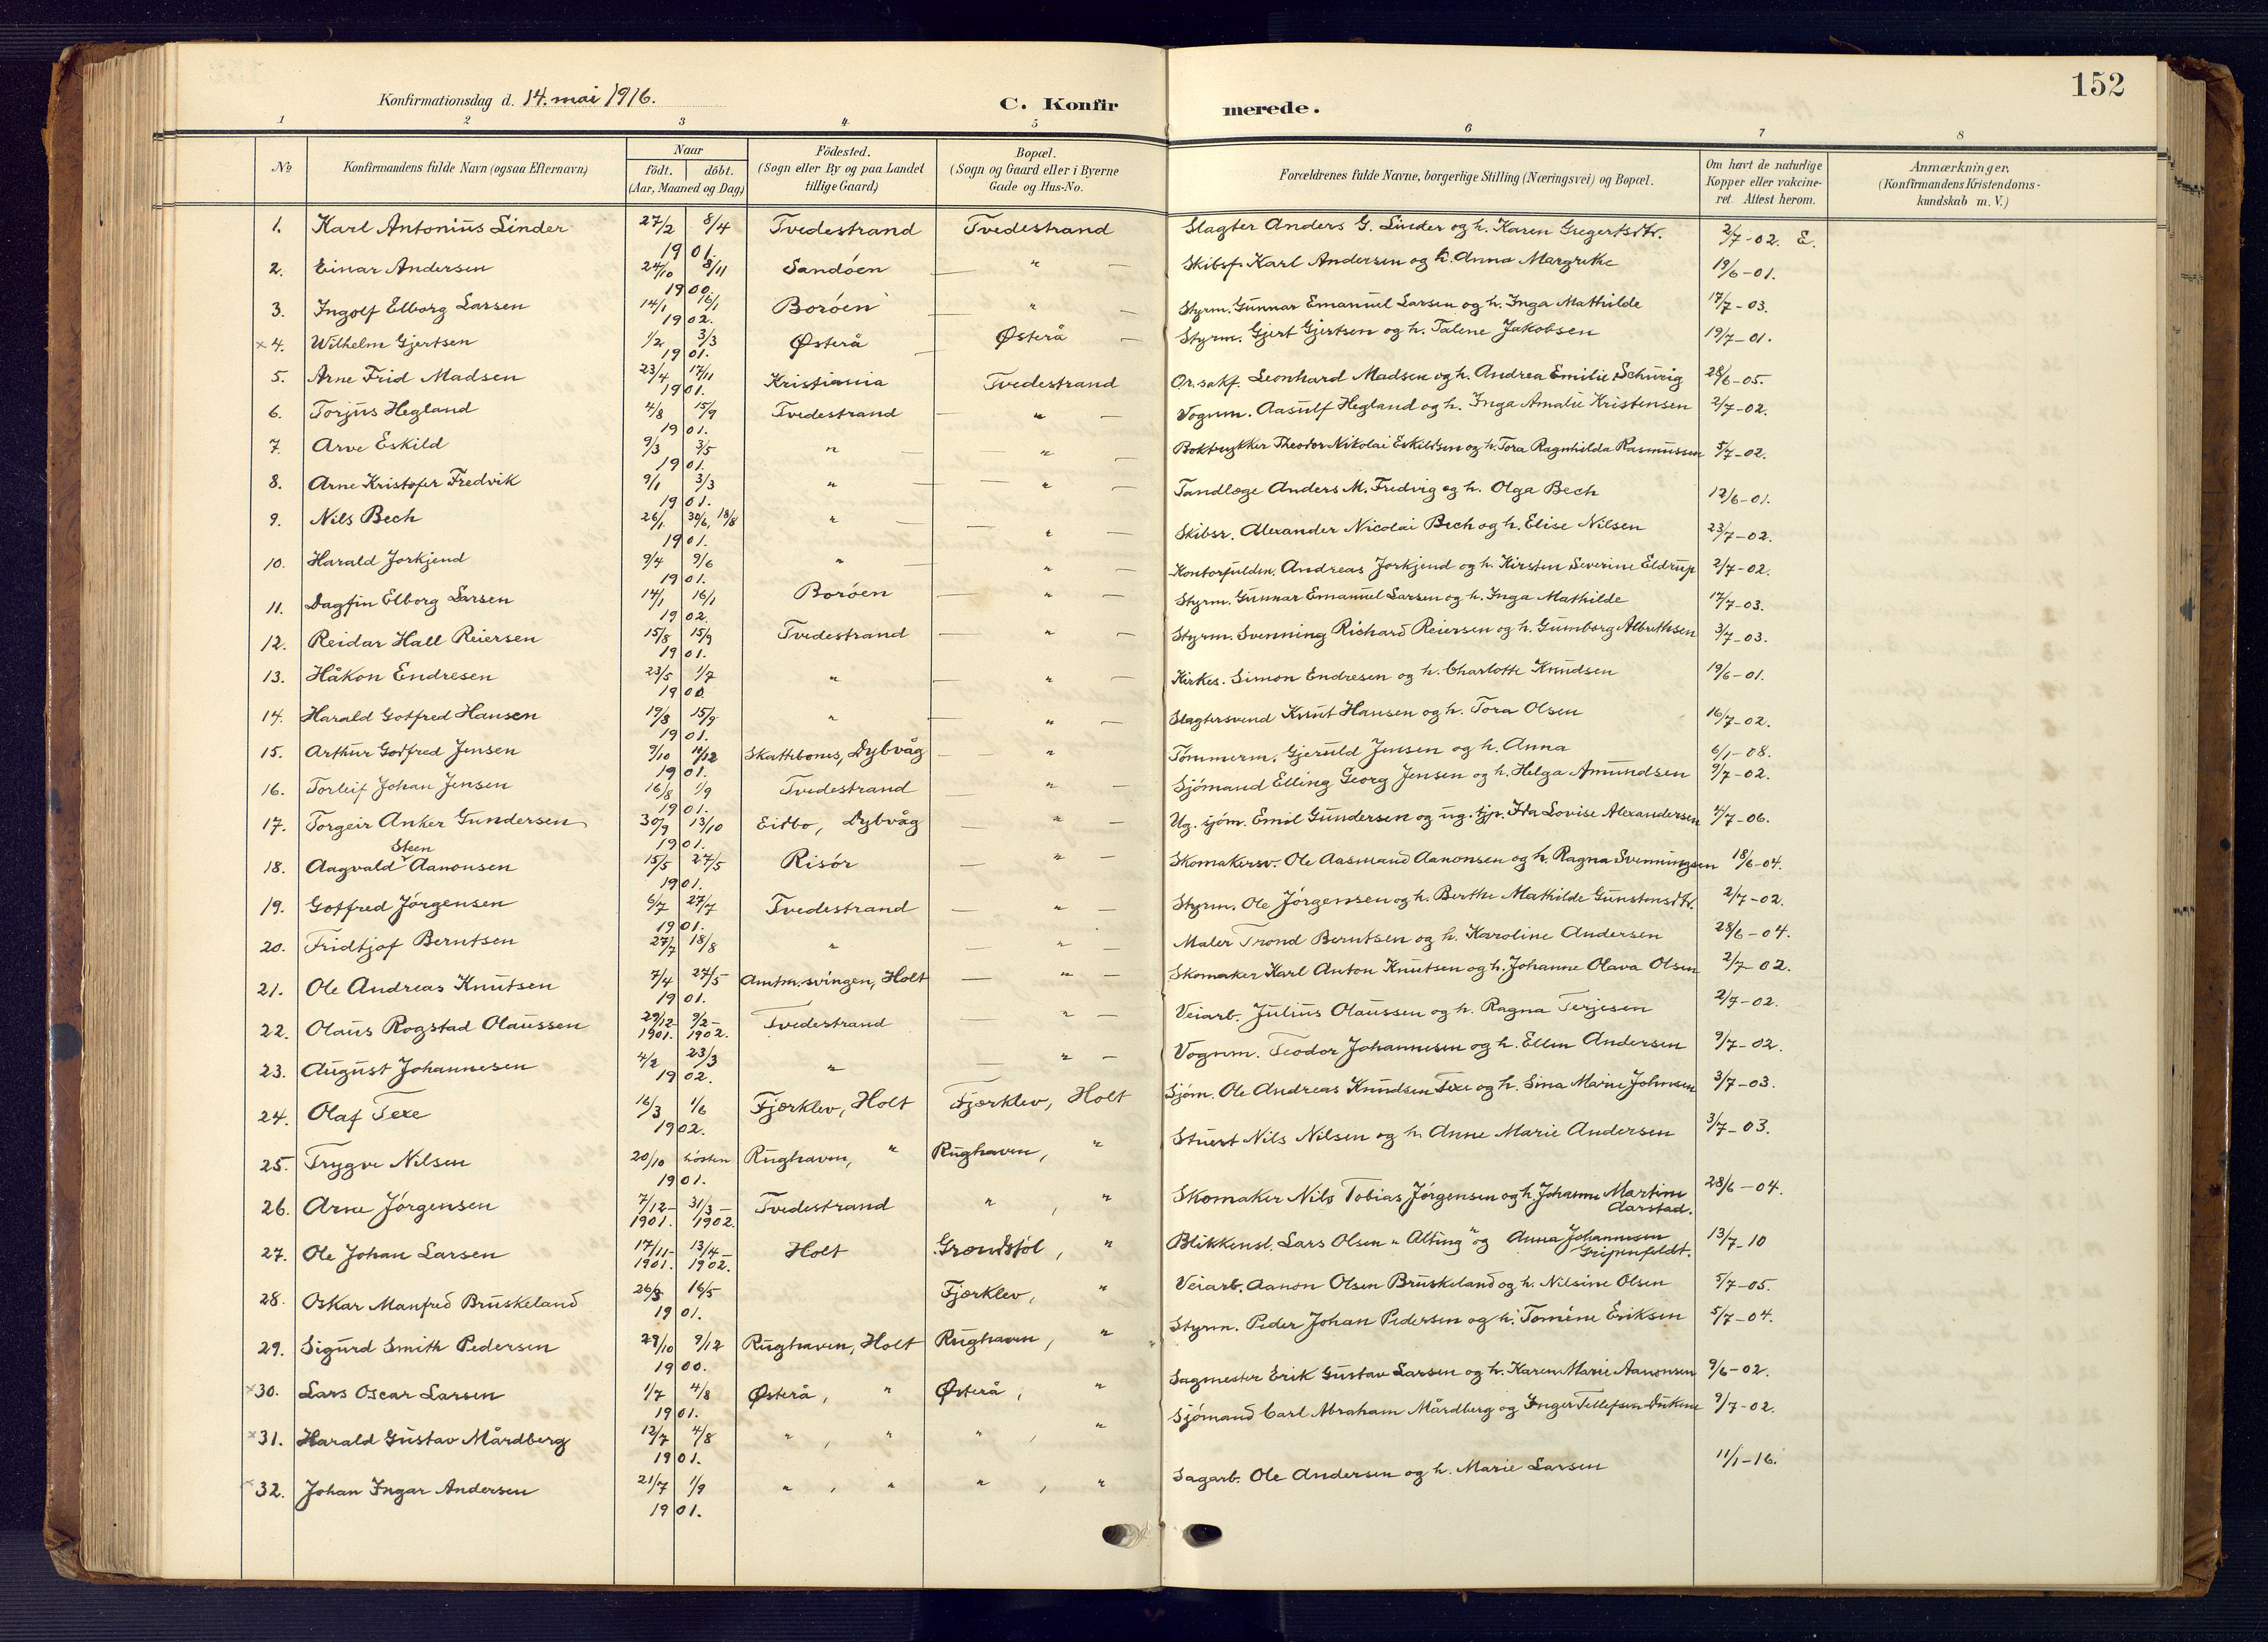 152
Konfirmationsdag d. 14. mai 1916.
C. Konfirmerede.
1 2 3 4 5 6 7 8
No Konfirmandens fulde Navn (ogsaa Efternavn) Naar født. døbt. (Aar, Maaned og Dag) Fødested. (Sogn eller By og paa Landet tillige Gaard) Bopæl. (Sogn og Gaard eller i Byerne Gade og Hus-No. Forældrenes fulde Navne, borgerlige Stilling (Næringsvei) og Bopæl. Om havt de naturlige Kopper eller vakcineret. Attest herom. Anmærkninger. (Konfirmandens Kristendomskundskab m. V.)
1. Karl Antonius Linder 27/2 8/4 1901. Tvedestrand Tvedestrand Slagter Anders G. Linder og h. Karen Gregertsdtr. 2/7-02. E.
2. Einar Andersen 24/10 8/11 1900. Sandöen — " — Skibsf. Karl Andersen og h. Anna Margrethe 19/6-01.
3. Ingolf Elborg Larsen 14/1 16/1 1902. Boröen — " — Styrm. Gunnar Emanuel Larsen og h. Inga Mathilde 17/7-03.
×4. Wilhelm Gjertsen 1/2 3/3 1901. Østerå — Østerå — Styrm. Gjert Gjertsen og h. Talene Jakobsen 19/7-01.
5. Arne Frid Madsen 23/4 17/11 1901. Kristiania Tvedestrand Or.sakf. Leonhard Madsen og h. Andrea Emilie Schurig 28/6-05.
6. Torjus Hegland 4/8 15/9 1901. Tvedestrand — " — Vognm. Aasulf Hegland og h. Inga Amalie Kristensen 2/7-02.
7. Arve Eskild 9/3 3/5 1901. " — " — Boktrykker Theodor Nikolai Eskildsen og h. Tora Ragnhilda Rasmussen 5/7-02.
8. Arne Kristofer Fredvik 9/1 3/3 1901. " — " — Tandlæge Anders M. Fredvig og h. Olga Bech 12/6-01.
9. Nils Bech 26/1 30/6, 18/8 1901. " — " — Skibsr. Alexander Nicolai Bech og h. Elise Nilsen 23/7-02.
10. Harald Jorkjend 9/4 9/6 1901. " — " — Kontorfuldm. Andreas Jorkjend og h. Kirsten Severine Eldrup 2/7-02.
11. Dagfin Elborg Larsen 14/1 16/1 1902. Boröen — " — Styrm. Gunnar Emanuel Larsen og h. Inga Mathilde 17/7-03.
12. Reidar Hall Reiersen 15/8 15/9 1901. Tvedestrand — " — Styrm. Svenning Richard Reiersen og h. Gumborg Albrethsen 3/7-03.
13. Håkon Endresen 23/5 1/7 1900. " — " — Kirkes. Simon Endresen og h. Charlotte Knudsen 19/6-01.
14. Harald Gotfred Hansen 19/8 15/9 1901. " — " — Slagtersvend Knut Hansen og h. Tora Olsen 16/7-02.
15. Arthur Godfred Jensen 9/10 11/12 1901. Skattebones, Dybvåg — " Tömmerm. Gjeruld Jensen og h. Anna 6/1-08.
16. Torleif Johan Jensen 16/8 1/9 1901. Tvedestrand — " — Sjömand Elling Georg Jensen og h. Helga Amundsen 9/7-02.
17. Torgeir Anker Gundersen 30/9 13/10 1901. Eidbo, Dybvåg — " — Ug. sjöm. Emil Gundersen og ug. tjp. Ida Lovise Alexandersen 4/7-06.
Steen
18. Aagvald Aanonsen 15/5 27/5 1901. Risör — " — Skomakersv. Ole Aasmund Aanonsen og h. Ragna Svenningsen 18/6-04.
19. Gotfred Jörgensen 6/7 27/7 1901. Tvedestrand — " — Styrm. Ole Jörgensen og h. Berthe Mathilde Gunstensdtr. 2/7-02.
20. Fridtjof Berntsen 27/7 18/8 " — " — Maler Trond Berntsen og h. Karoline Andersen 28/6-04.
21. Ole Andreas Knutsen 7/4 27/5 1901. Amtm.svingen, Holt — " — Skomaker Karl Anton Knutsen og h. Johanne Olava Olsen 2/7-02.
22. Olaus Rogstad Olaussen 29/12-1901. 9/2-1902. Tvedestrand — " — Veiarb. Julius Olaussen og h. Ragna Terjesen 2/7-02.
23. August Johannesen 4/2 23/3 1902. " — " — Vognm. Teodor Johannesen og h. Ellen Andersen 9/7-02.
24. Olaf Texe 16/3 1/6 1902. Fjærklev, Holt Fjærklev, Holt Sjöm. Ole Andreas Knudsen Texe og h. Sina Marie Johnsen 3/7-03.
25. Trygve Nilsen 20/10 hösten 1901. Rughaven, " Rughaven, " Stuert Nils Nilsen og h. Anne Marie Andersen 3/7-03.
26. Arne Jörgensen 7/12-1901. 31/3-1902. Tvedestrand " , " Skomaker Nils Tobias Jörgensen og h. Johanne Martine Aarstad. 28/6-04.
27. Ole Johan Larsen 17/11-1901. 13/4-1902. Holt Grændsjöl, " Blikkensl. Lars Olsen "Alting" og Anna Johannesen Gripenfeldt. 13/7-10
28. Oskar Manfred Bruskeland 26/3 16/5 1901. Fjærklev, " Veiarb. Aanon Olsen Bruskeland og h. Nilsine Olsen 5/7-05.
29. Sigurd Smith Pedersen 29/10 9/12 1900. Rughaven, Holt Rughaven, " Styrm. Peder Johan Pedersen og h. Tomine Eriksen 5/7-04.
×30. Lars Oscar Larsen 1/7 4/8 1901. Østerå, " Østerå, " Sagmester Erik Gustav Larsen og h. Karen Marie Aanonsen 9/6-02.
×31. Harald Gustav Mårdberg 12/7 4/8 1901. " , " " , " Sjömand Carl Abraham Mårdberg og Inger Tellefsen Dukene 9/7-02.
×32. Johan Ingar Andersen 21/7 1/9 1901. " , " " , " Sagarb. Ole Andersen og h. Marie Larsen 11/1-16.